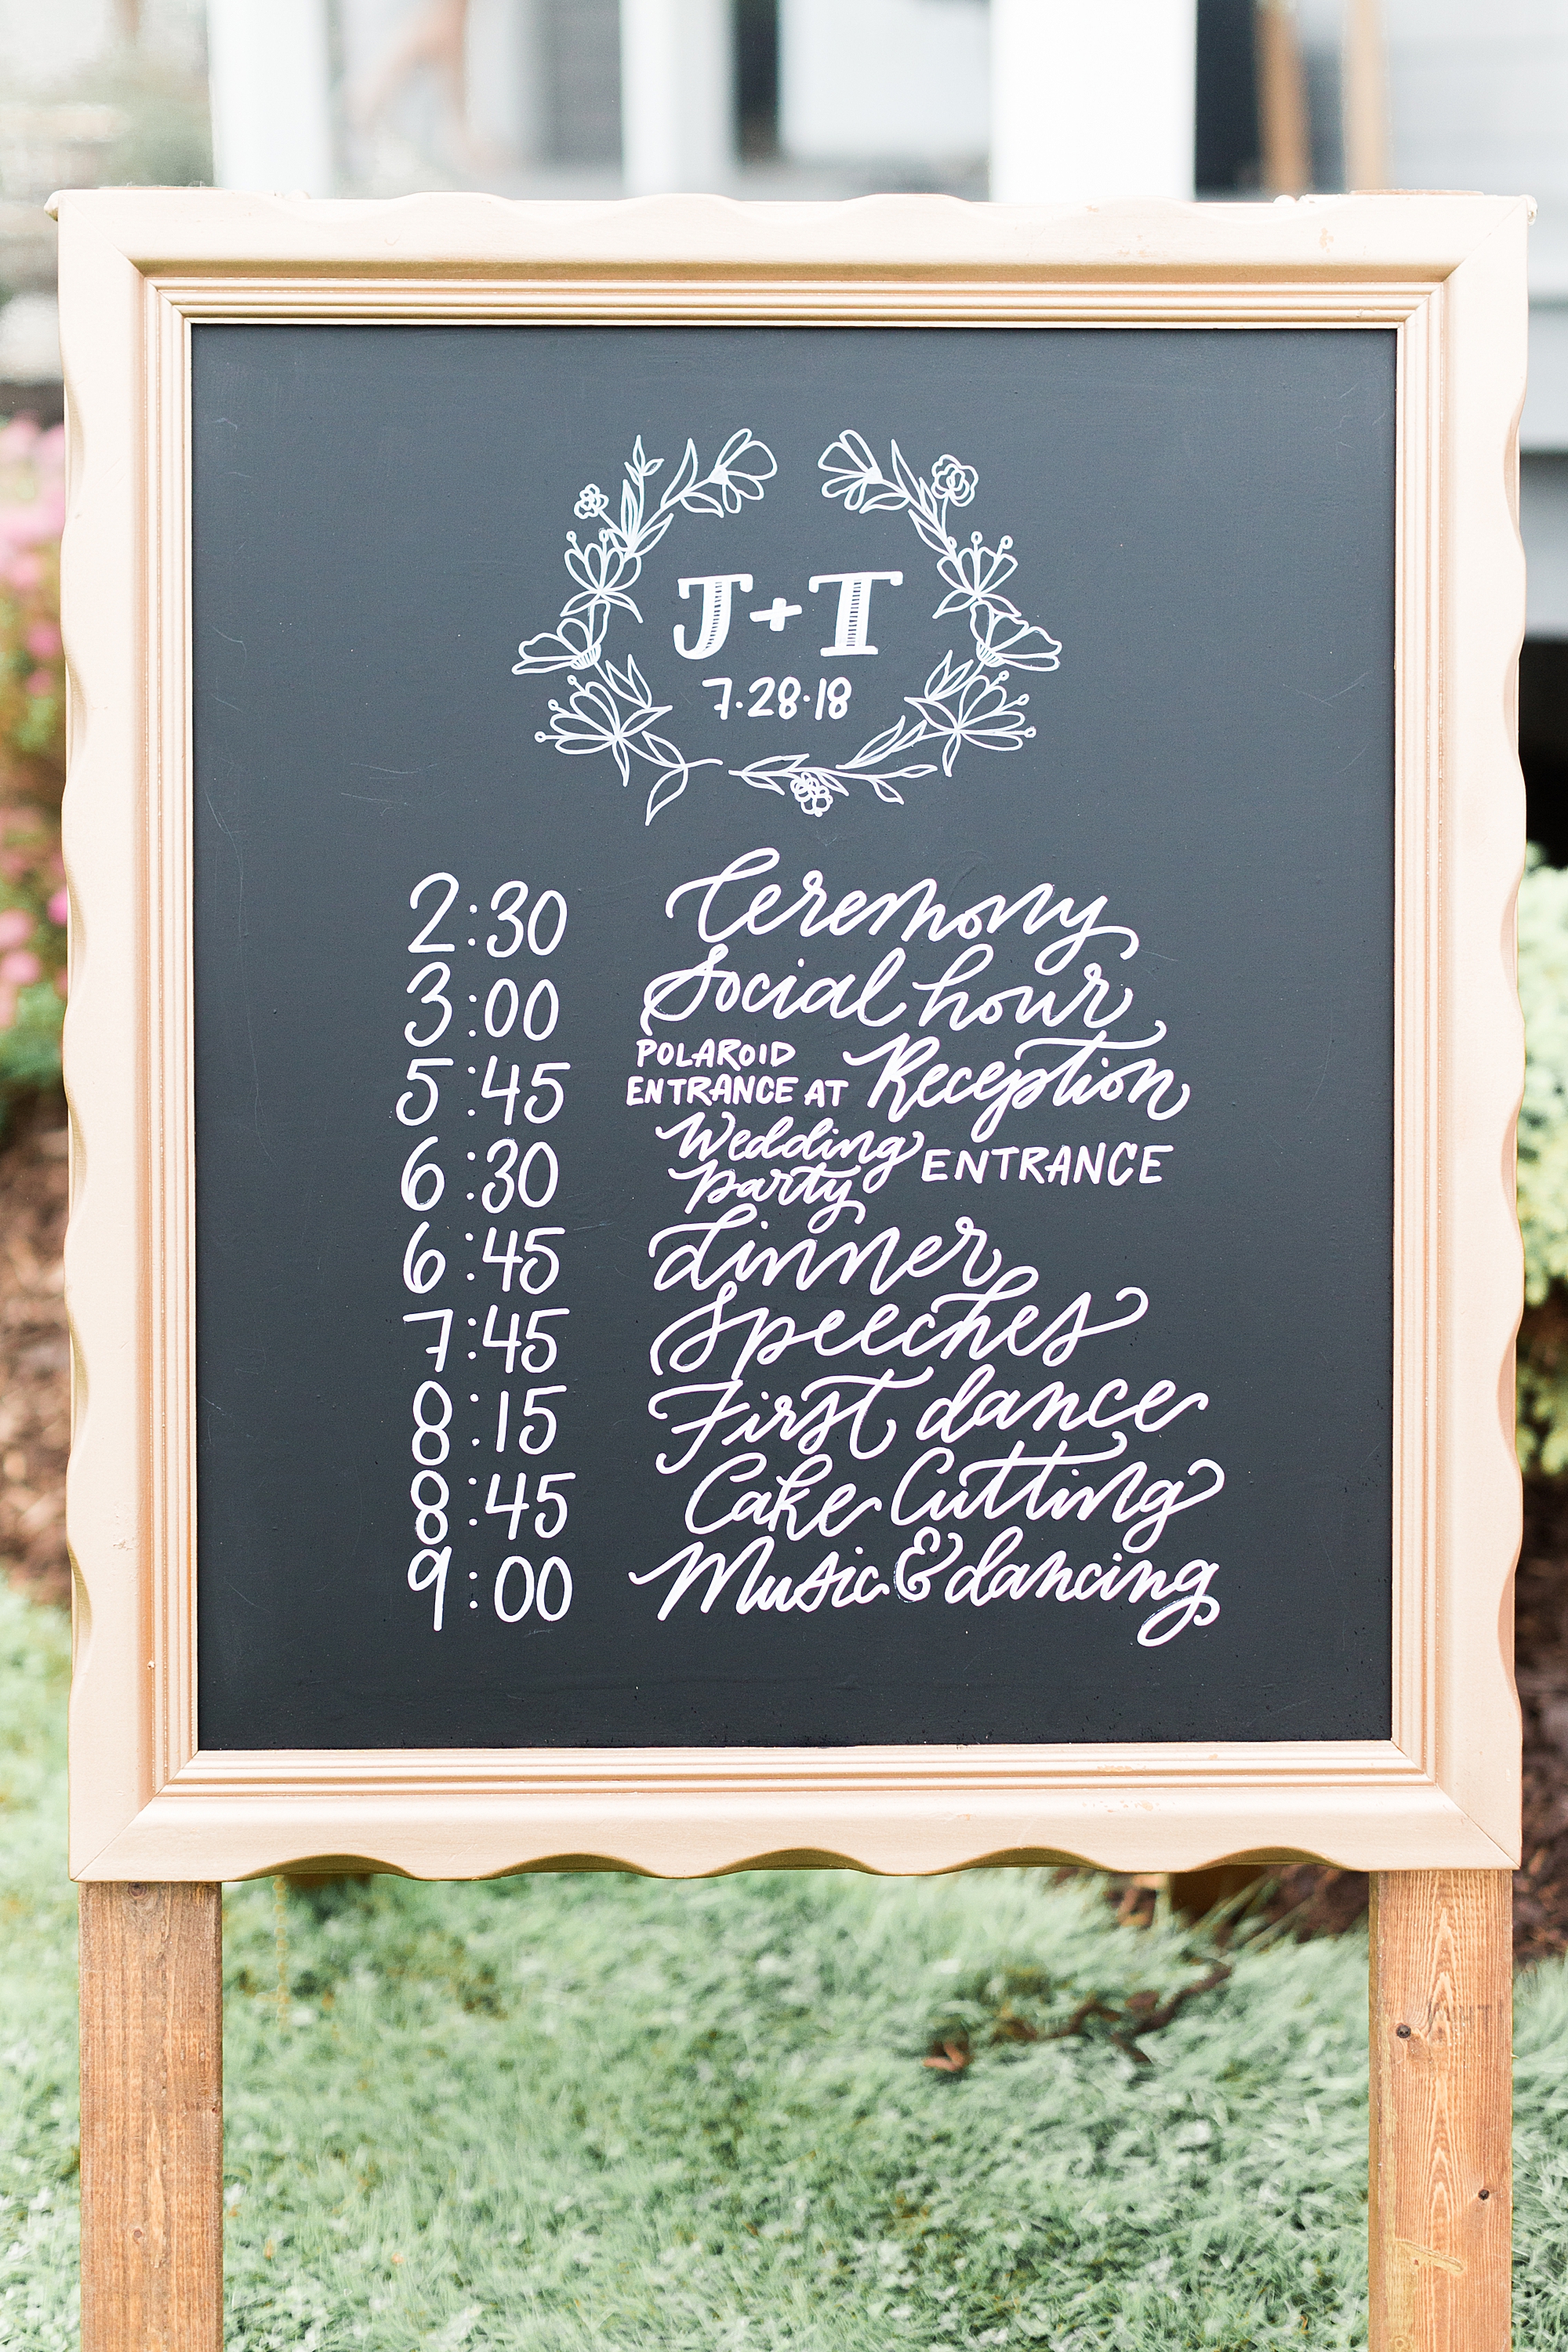 J+T
7.28.18
2:30 Ceremony
3:00 Social hour
5:45 POLAROID ENTRANCE AT Reception
6:30 Wedding party ENTRANCE
6:45 dinner
7:45 Speeches
8:15 First dance
8:45 Cake Cutting
9:00 Music & dancing